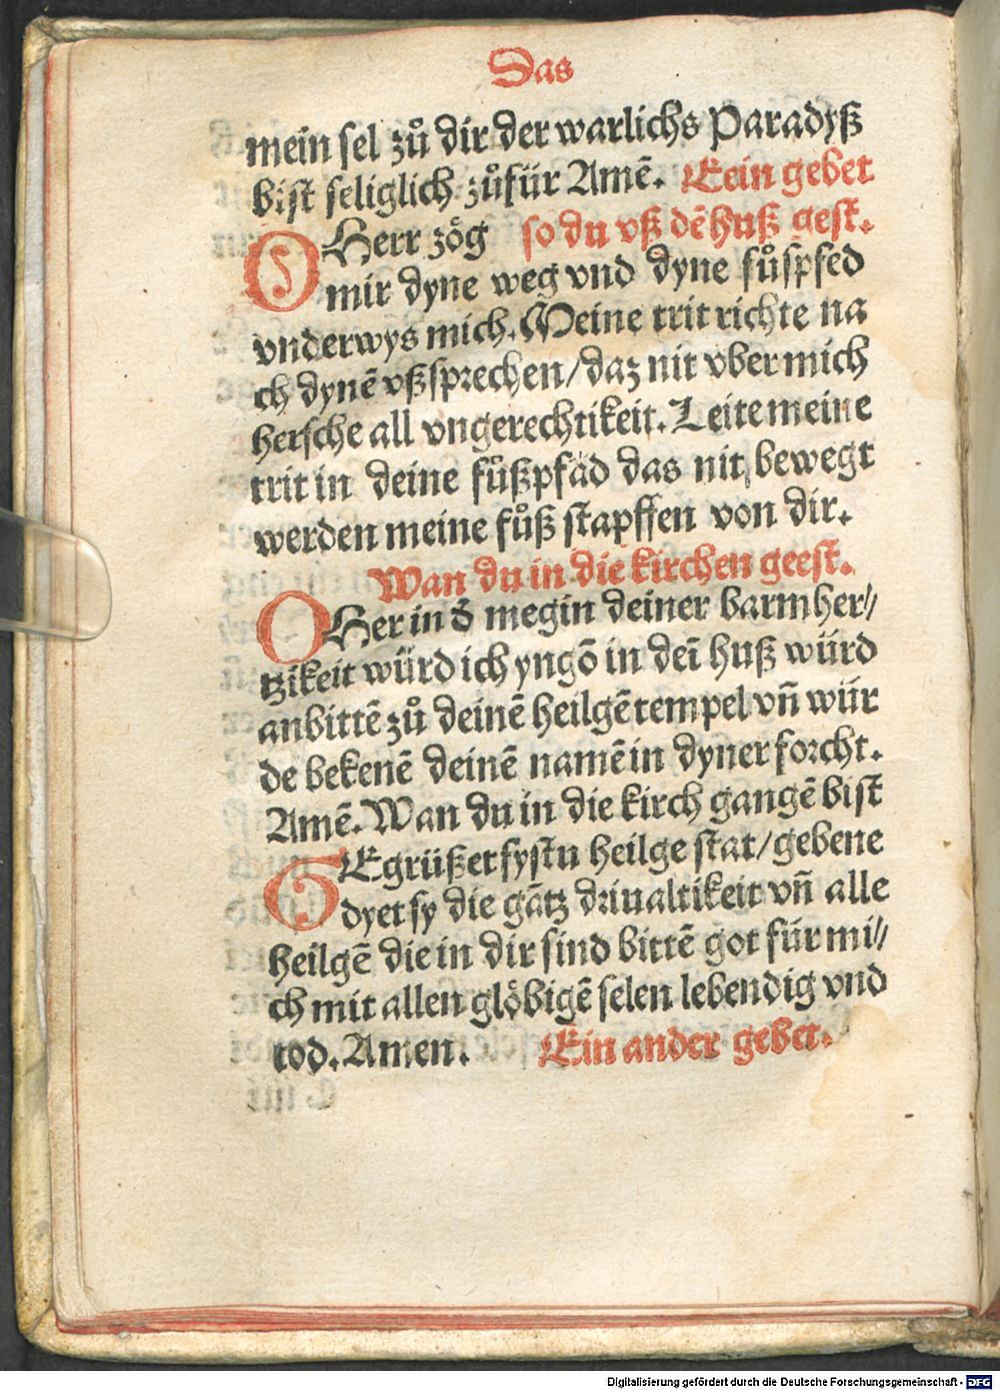 Das
mein sel zů dir der warlichs Paradyß
bist seliglich zůfür Amē. Eein gebet
O Herr zög so du vß dē huß gest.
mir dyne weg vnd dyne fůspfed
vnderwys mich. Meine trit richte na
ch dynē vßsprechen/daz nit vber mich
hersche all vngerechtikeit. Leite meine
trit in deine fůßpfäd das nit bewegt
werden meine fůß stapffen von dir.
Wan du in die kirchen geest.
O Her in d̄ megin deiner barmher//
tzikeit würd ich yngō in deī huß würd
anbittē zů deinē heilgē tempel vn̄ wür
de bekenē deinē namē in dyner forcht.
Amē. Wan du in die kirch gangē bist
GEgrüßet systu heilge stat/gebene
dyet sy die gātz driualtikeit vn̄ alle
heilgē die in dir sind bittē got für mi//
ch mit allen glöbigē selen lebendig vnd
tod. Amen. Ein ander gebet.
Digitalisierung gefördert durch die Deutsche Forschungsgemeinschaft - DFG